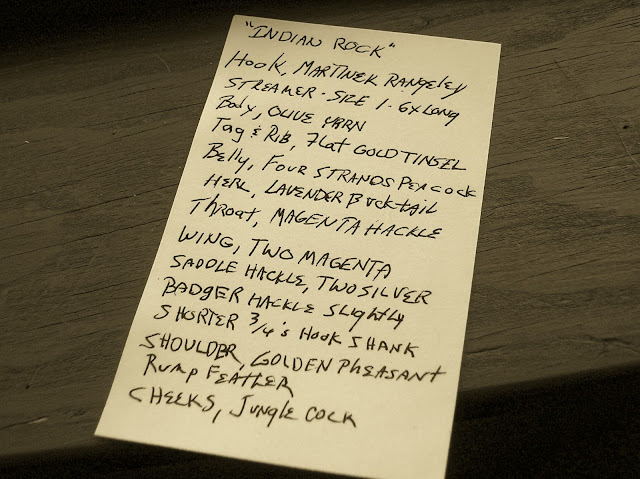 "INDIAN ROCK"
Hook, MARTINEK RANGELEY
STREAMER - SIZE 1 - 6X Long
Body, OLIVE YARN
Tag & RIB, Flat GOLD TINSEL
Belly, FOUR STRANDS PEACOCK
HERL, LAVENDER BUCKTAIL
Throat, MAGENTA HACKLE
WING, TWO MAGENTA
SADDLE HACKLE, TWO SILVER
BADGER HACKLE Slightly
SHORTER 3/4's Hook SHANK
SHOULDER, GOLDEN PHEASANT
Rump FEATHER
CHEEKS, Jungle COCK